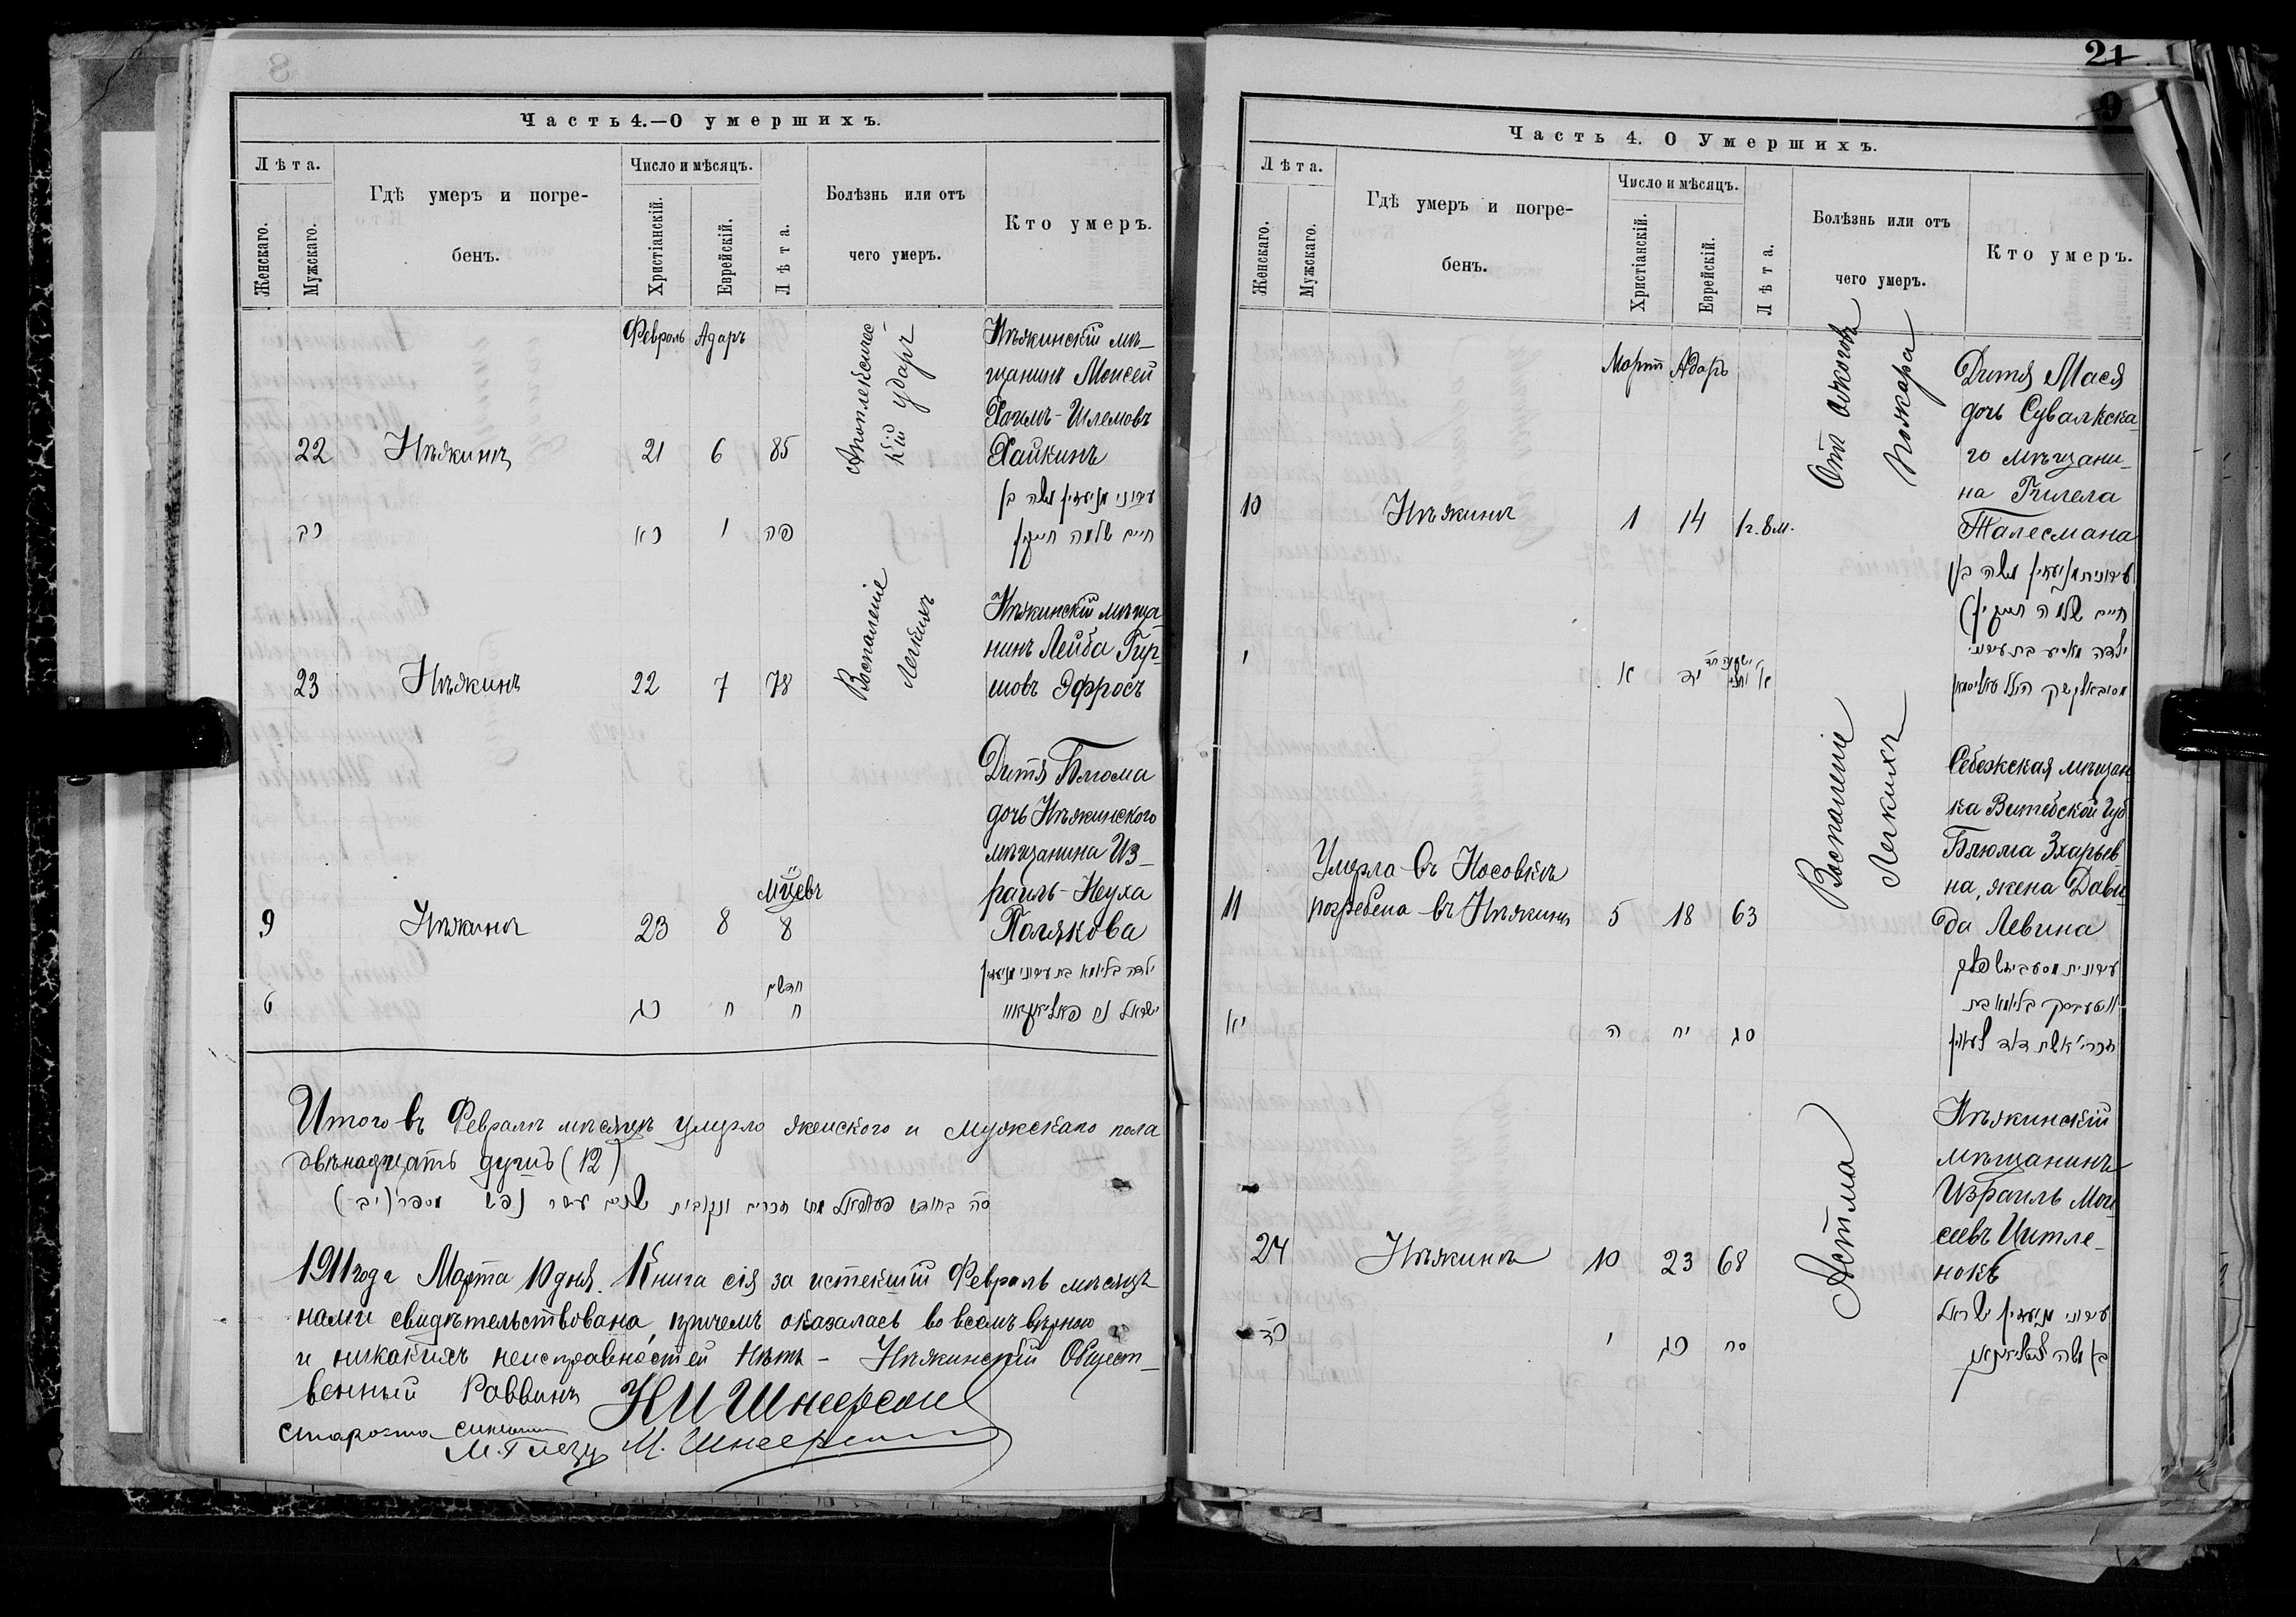 Часть 4.—О умершихъ.
Лѣта.
Женскаго.
Мужскаго.
Гдѣ умеръ и погре-
бенъ.
Число и мѣсяцъ.
Христіанскій.
Еврейскій.
Лѣта.
Болѣзнь или отъ
чего умеръ.
Кто умеръ.
Февраль Адаръ
22 Нѣжинъ 21 6 85
Апоплексичес-
кій ударъ
Нѣжинскій мѣ-
щанинъ Моисей
Хаимъ-Шлемовъ
Хайкинъ
חיים שלמה חייקין
כב כא ו פה
23 Нѣжинъ 22 7 78
Воспаленіе
Легкихъ
Нѣжинскій мѣща
нинъ Лейба Гир-
шовъ Эфросъ
9 Нѣжинъ 23 8 8
Дитя Блюма
дочь Нѣжинского
мѣщанина Из-
раиль-Неуха
Полякова
כג ח חדשים ח
Итого въ Февралѣ мѣсяцѣ умерло женского и мужскаго пола
двѣнадцать душъ (12)
1911 года Марта 10 дня. Книга сія за истекшій Февраль мѣсяцъ
нами свидѣтельствована, причемъ оказалась во всемъ вѣрною
и никакихъ неисправностей нѣтъ - Нѣжинскій Общест-
венный Раввинъ Н И Шнеерсон
Староста
М. Шнеерсон
21
9
Часть 4. О Умершихъ.
Лѣта.
Женскаго.
Мужскаго.
Гдѣ умеръ и погре-
бенъ.
Число и мѣсяцъ.
Христіанскій.
Еврейскій.
Лѣта.
Болѣзнь или отъ
чего умеръ.
Кто умеръ.
Мартъ Адаръ
10 Нѣжинъ 1 14 1г. 8м.
Отъ ожоговъ
пожара
Дитя Мася
дочь Сувалкска
го мѣщани-
на Гилела
Талесмана
חיים שלמה חייקין)
י א יד
11 Умерла въ Носовкѣ
погребена въ Нѣжинѣ 5 18 63
Воспаленіе
Легкихъ
Себежская мѣщан
ка Витебской губ
Блюма Зхарьев
на, жена Дави
да Левина
יא ה יח סג
24 Нѣжинъ 10 23 68
Астма
Нѣжинскій
мѣщанинъ
Израиль Мои
сеевъ Цитле-
нокъ
כד י כג סח